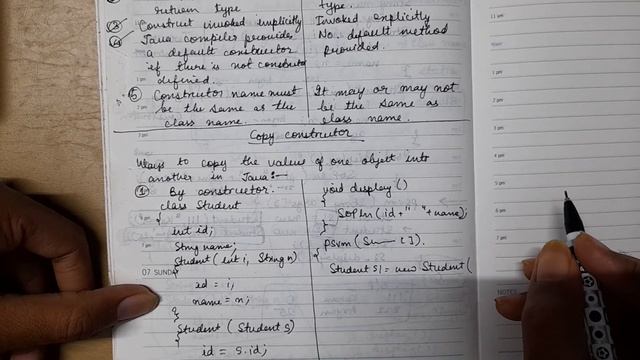 return type
③ Construct invoked implicitly
④ Java compiler provides
a default constructor
if there is not constructor
defined.
⑤ Constructor name must
be the same as the
class name.
type.
Invoked explicitly
No. default method
provided.
It may or may not
be the same as
class name.
Copy constructor
Ways to copy the values of one object into
another in Java:-
① By constructor.
class Student
{
int id;
String name;
Student (int i, String n)
{
id = i;
name = n;
}
Student (Student s)
{
id = s.id;
void display()
{
SOPln (id+" "+name);
}
psvm (S[]).
{
Student S1 = new Student (
07 SUNDAY
11 pm
1 pm
2 pm
3 pm
4 pm
5 pm
6 pm
7 pm
NOTES